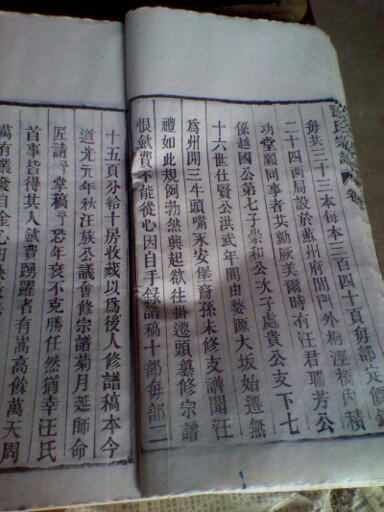 毎共三十三本每本三百四十頁每部定價錢
二十四兩局設於蘇州府閶門外桐涇橋內積
功堂願同事者共勷厥美爾時有汪君聯芳公
係越國公第七子崇和公次子處貴公支下七
十六世仕賢公洪武年間由婺源大坂始遷無
為州開三牛頭嘴永安堡裔孫未修支譜聞汪
禮如此規例勃然興起欲往掛遷頭纂修宗譜
恨歛費不能從心因自手錄譜稿十部每部二
十五頁分給十房收藏以為後人修譜稿本今
道光元年秋汪族公議會修宗譜菊月延師命
匠請予掌稿予恐年衰不克勝任然猶幸汪氏
首事皆得其人歛費踴躍者有嵩高餘萬天周
萬有叢發自金心因